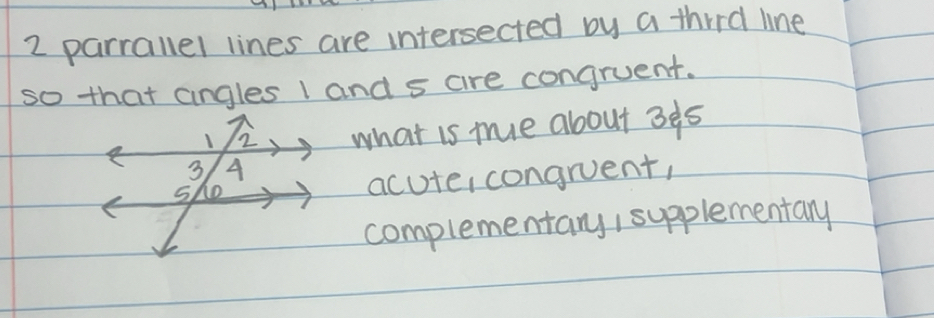 2 parrallel lines are intersected by a third line
so that angles 1 and 5 are congruent.
1 2
what is true about 3&5
3 4
acute, congruent,
5 6
complementary, supplementary